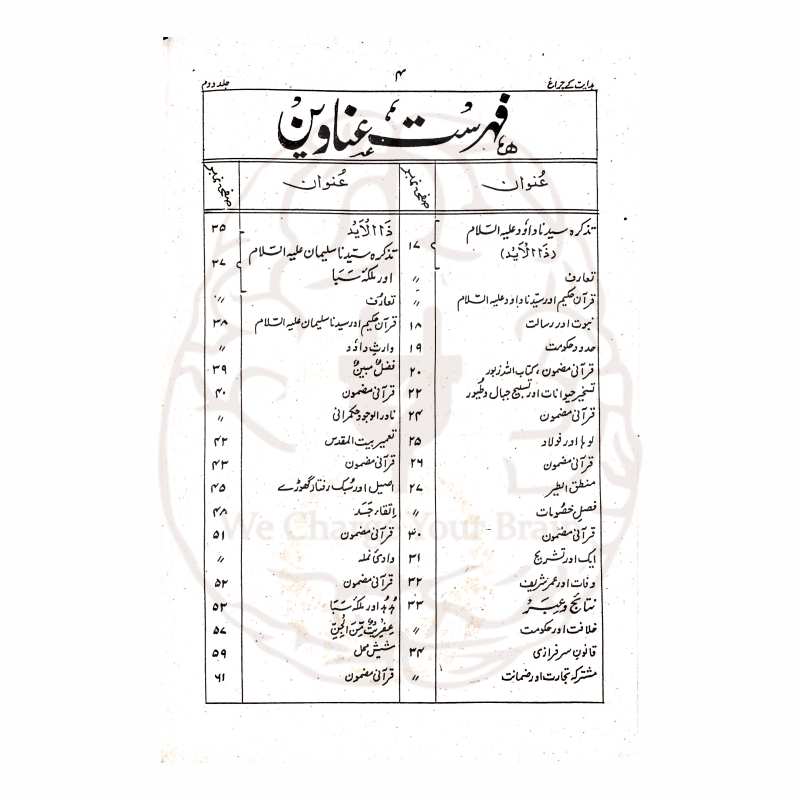 ہدایت کے چراغ
۴
جلد دوم
فہرست عناوین
عُنوان
صفحہ نمبر
تذکرہ سیدنا داؤد علیہ السّلام
(ذَا الْاَیْد)
۱۷
تعارف
〃
قرآن حکیم اور سیّدنا داود علیہ السّلام
〃
نبوت اور رسالت
۱۸
حدود حکومت
۱۹
قرآنی مضمون، کتاب اللہ زبور
۲۰
تسخیر حیوانات اور تسبیح جبال وطُیور
۲۲
قرآنی مضمون
۲۴
لوہا اور فولاد
۲۵
قرآنی مضمون
۲۶
منطق الطیر
۲۷
فصلِ خصُومات
〃
قرآنی مضمون
۳۰
ایک اور تشریح
۳۱
وفات اور عمر شریف
۳۲
نتائج و عِبَر
۳۳
خلافت اور حکومت
〃
قانونِ سرفرازی
۳۴
مشترکہ تجارت اور ضمانت
〃
عُنوان
صفحہ نمبر
ذَا الْاَیْد
۳۵
تذکرہ سیّدنا سلیمان علیہ السّلام
اور ملکہ سَبَا
۳۷
تعارف
〃
قرآن حکیم اور سیدنا سلیمان علیہ السّلام
۳۸
وارثِ داؤد
〃
فضلٌ مبینٌ
۳۹
قرآنی مضمون
۴۰
نادر الوجود حکمرانی
〃
تعمیر بیت المقدس
۴۲
قرآنی مضمون
۴۳
اصیل اور سُبک رفتار گھوڑے
۴۵
اِلقاءِ جَسَد
۴۸
قرآنی مضمون
۵۱
وادیٔ نملہ
〃
قرآنی مضمون
۵۲
ہُدہُد اور ملکہ سَبَا
۵۳
عِفریتٌ مِّنَ الْجِنِّ
۵۷
شیش محل
۵۹
قرآنی مضمون
۶۱
We Change Your Brain